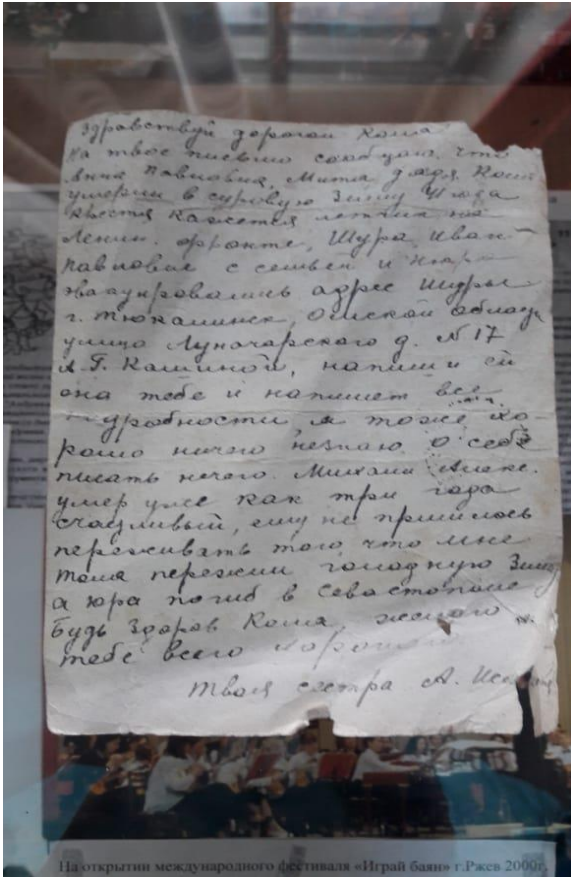 Здравствуй дорогой Коля
На твое письмо сообщаю, что
Анна Павловна, Митя дядя Коля
умерли в суровую зиму
Костя кажется летчик на
Ленин. фронте, Шура Иван
Павлович с семьей и Нюра
эвакуировались адрес Шуры
г. Тюкалинск, Омской области
улица Луначарского д. N 17
А. Г. Калиной, напиши ей
она тебе и напишет все
подробности я тоже хо-
рошо ничего незнаю о себе
писать нечего. Михаил Алекс.
умер уже как три года
счасливый, ему не пришлось
переживать того, что мне
Толя пережил голодную зиму
а Юра погиб в Севастополе
Будь здоров Коля, желаю
тебе всего хорошего
Твоя сестра А.
На открытии международного фестиваля «Играй баян» г.Ржев 2000г.